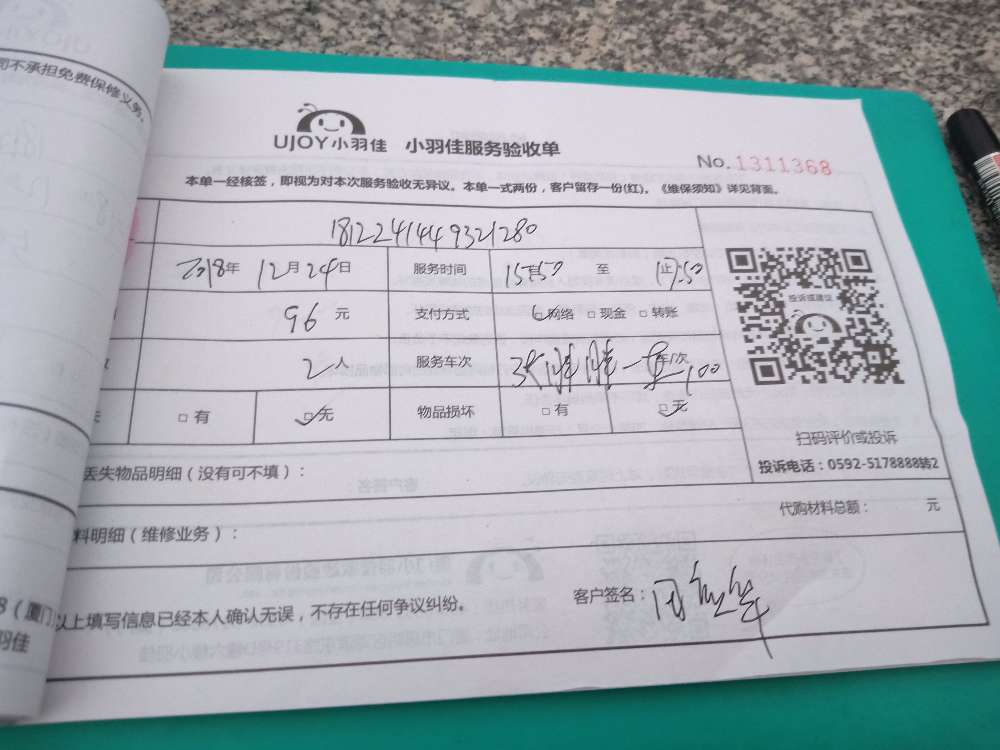 司不承担免费保修义务。
UJOY小羽佳 小羽佳服务验收单
No.1311368
本单一经核签，即视为对本次服务验收无异议。本单一式两份，客户留存一份(红)。《维保须知》详见背面。
1812241449321280
2018年 12月 24日 服务时间 15:50 至 17:50
投诉或建议
96 元 支付方式 □网络 □现金 □转账
2人 服务车次 车/次
□有 □无 物品损坏 □有 □无
扫码评价或投诉
投诉电话：0592-5178888转2
丢失物品明细（没有可不填）：
代购材料总额： 元
料明细（维修业务）：
客户签名：
以上填写信息已经本人确认无误，不存在任何争议纠纷。
8（厦门
羽佳